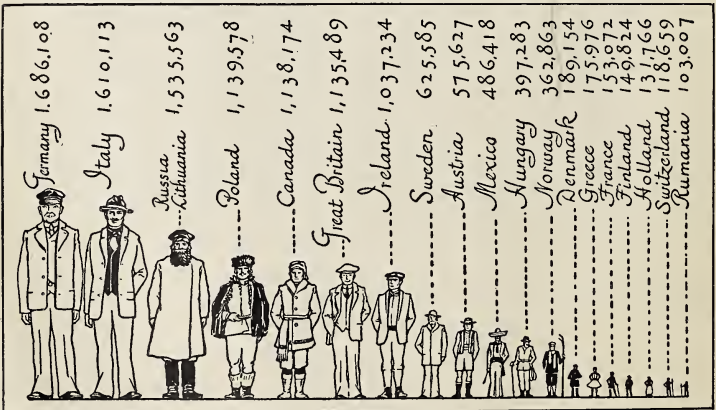 Germany 1.686,108
Italy 1.610,113
Russia
Lithuania 1,535,563
Poland 1,139,578
Canada 1,138,174
Great Britain 1,135,489
Ireland 1,037,234
Sweden 625,585
Austria 575,627
Mexico 486,418
Hungary 397,283
Norway 362,863
Denmark 189,154
Greece 175,976
France 153,072
Finland 149,824
Holland 131,766
Switzerland 118,659
Rumania 103,007